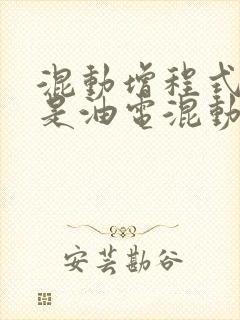 混動增程式
是油電混動
安芸勘谷